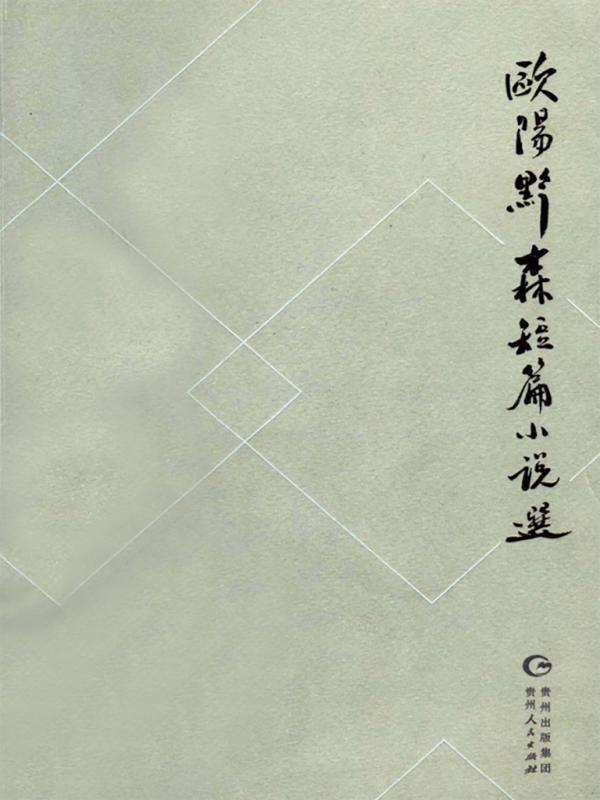 歐陽黔森短篇小説選
贵州出版集团
贵州人民出版社